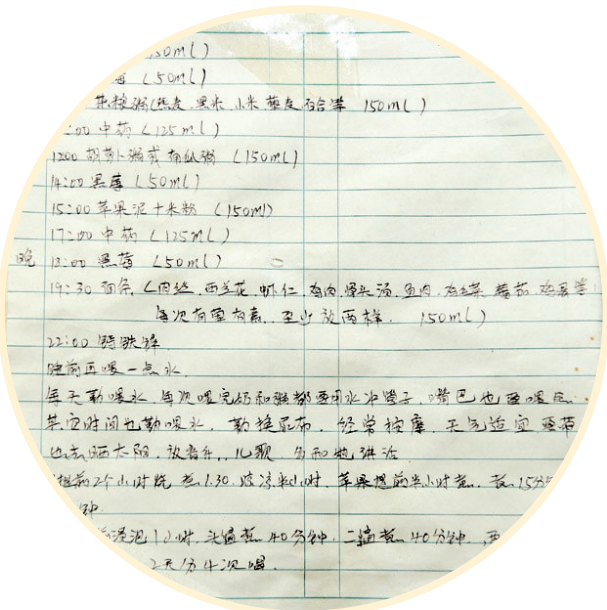 50ml)
莓 (50ml)
杂粮粥(燕麦、黑米、小米 百合等 150ml)
:00 中药 (125ml)
1200 胡萝卜粥或南瓜粥 (150ml)
14:00 黑莓 (50ml)
15:00 苹果泥+米粉 (150ml)
17:00 中药 (125ml)
晚 18:00 黑莓 (50ml)
19:30 面条 (肉丝、西兰花、虾仁、鸡肉 骨头汤、鱼肉、菜 蕃茄、鸡蛋等
每次有荤有素、至少放两样、 150ml)
22:00 钙铁锌
睡前再喂一点水
每天勤喂水 每次喂完奶和粥都要用水冲管子、嘴巴也要喂点、
其它时间也勤喂水、勤换尿布、经常按摩、天气适宜要带
出去晒太阳、放音乐、儿歌、多和她讲话
提前2个小时 煮1.30、放凉半小时、苹果提前半小时煮、蒸 15
钟
浸泡1小时、头遍煮40分钟、二遍煮40分钟、两
2天分4次喝.